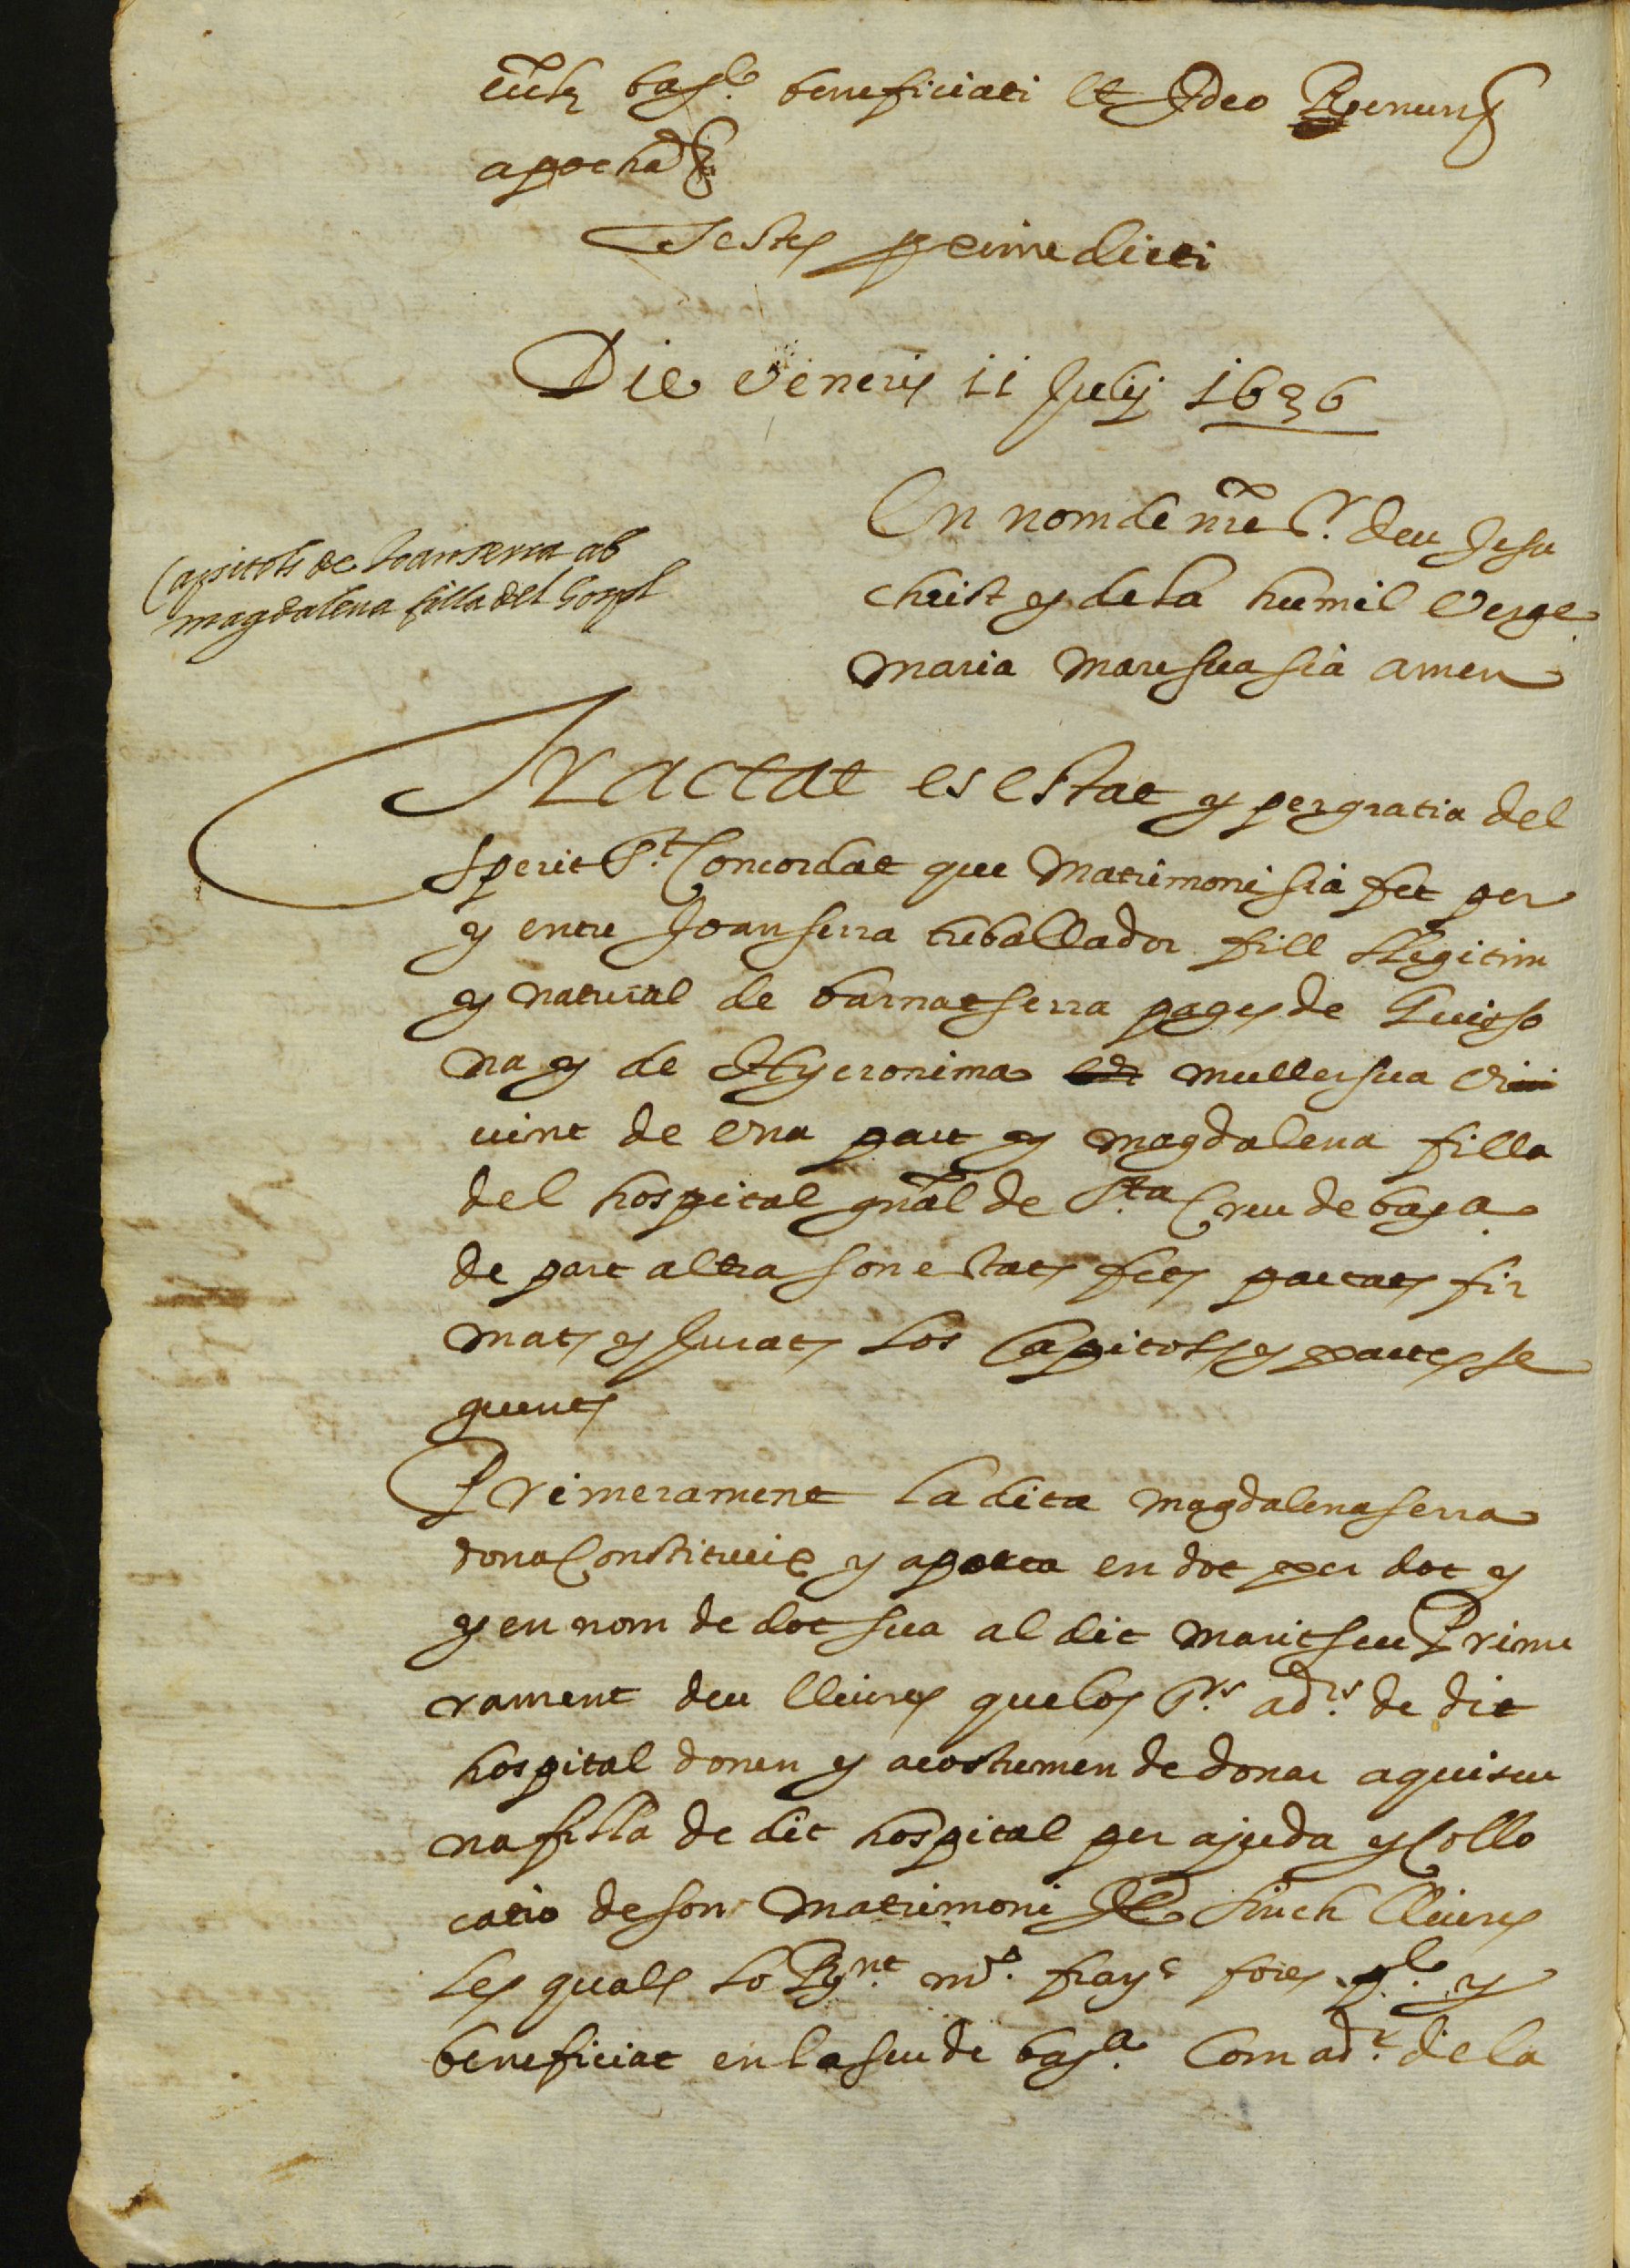 beneficiati et Ideo Renun
apocha
Testes prime dicti
Die veneris 11 Julij 1636
En nom de nre Sr. deu Jesu
christ y de la humil verge
maria mare sua sia amen
Capitols de Joan serra ab
magdalena filla del hospl
Tractat es estat y per gratia del
sperit St. Concordat que Matrimoni sia fet per
y entre Joan serra treballador fill llegitim
y natural de barnat serra pages de Guisso
na y de Hyeronima muller sua
vint de una part y magdalena filla
del hospital gnal de Sta Creu de bara
de part altra son estats fets pactats fir
mats y Jurats los Capitols y pactes se
guents
Primerament la dita magdalena serra
dona Constitueix y aporta en dot per dot y
y en nom de dot sua al dit marit seu Prime
rament deu lliures que los Srs. adrs. de dit
hospital donen y acostumen de donar a quiscu
na filla de dit hospital per ajuda y Collo
catio de son matrimoni It sinch lliures
les quals lo Rnt. mo. fray fores y
beneficiat en la seu de bara. Com adr. de la